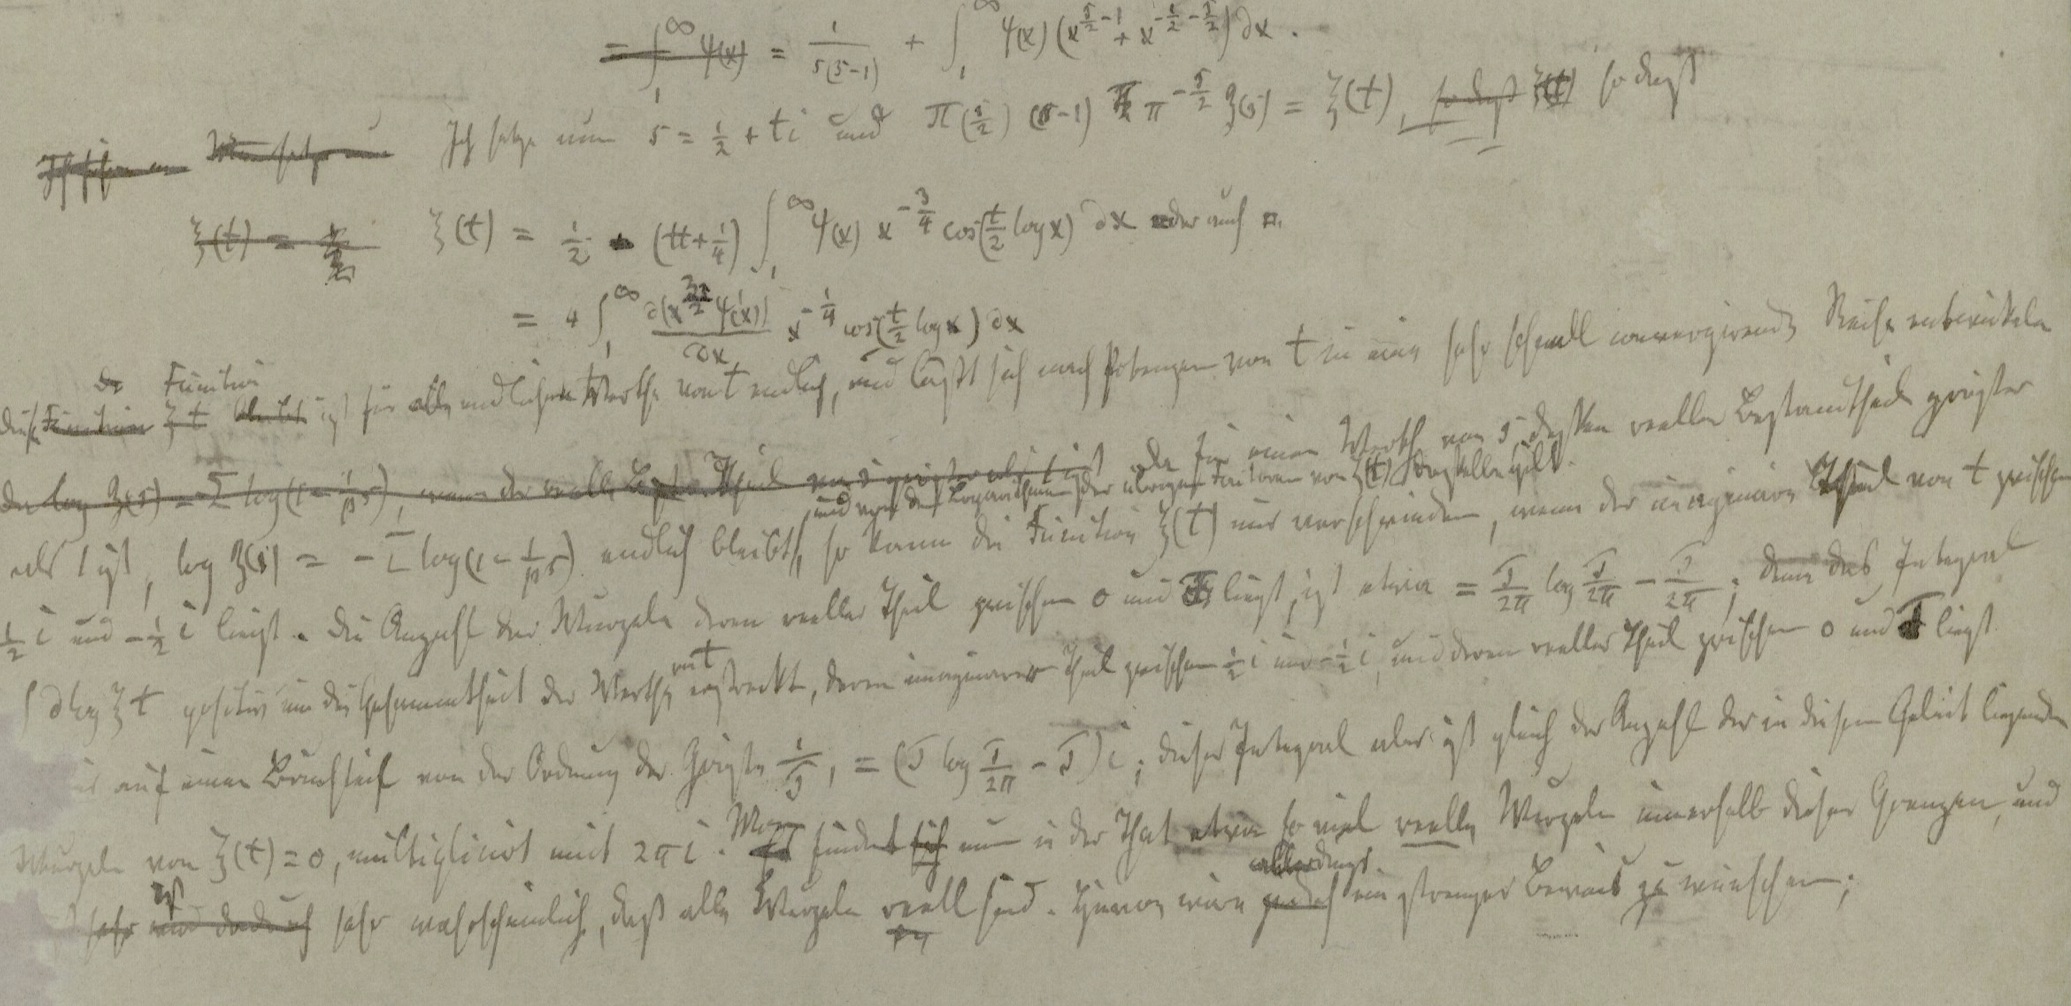 = ∫₁^∞ ψ(x) = 1/(s(s−1)) + ∫₁^∞ ψ(x) (x^{s/2−1} + x^{−1/2−s/2}) ∂x .
Ich setze nun s = 1/2 + ti und Π(s/2) (s−1) π^{−s/2} ζ(s) = ξ(t), so daß ξ(t) so daß
ξ(t) = ξ(t) = 1/2 − (tt+1/4) ∫₁^∞ ψ(x) x^{−3/4} cos(t/2 log x) ∂x oder auch
= 4 ∫₁^∞ ∂(x^{3/2} ψ'(x))/∂x x^{−1/4} cos(t/2 log x) ∂x
Function
Diese Function ξt bleibt ist für alle endlichen Werthe von t endlich, und läßt sich nach Potenzen von t in eine sehr schnell convergirende Reihe entwickeln
Da log ζ(s) = −Σ log(1−1/p^s), wenn der reelle Theil von s größer als 1 ist Da für einen Werth von s, dessen reeller Bestandtheil größer
und von den Logarithmen der übrigen Factoren von ξ(t) dasselbe gilt.
als 1 ist, log ζ(s) = −Σ log(1−1/p^s) endlich bleibt, so kann die Function ξ(t) nur verschwinden, wenn der imaginäre Theil von t zwischen
1/2 i und −1/2 i liegt. Die Anzahl der Wurzeln deren reeller Theil zwischen 0 und T liegt, ist etwa = T/2π log T/2π − T/2π; denn das Integral
∫∂log ξt positiv um die Gesammtheit der Werthe von t erstreckt, deren imaginärer Theil zwischen 1/2 i und −1/2 i, und deren reeller Theil zwischen 0 und T liegt
auf einen Bruchtheil von der Ordnung der Größe 1/T, = (T log T/2π − T) i; dieses Integral aber ist gleich der Anzahl der in diesem Gebiet liegenden
Wurzeln von ξ(t) = 0, multiplicirt mit 2πi. Man findet sich nun in der That etwa so viel reelle Wurzeln innerhalb dieser Grenzen, und
allerdings
sehr und dadurch sehr wahrscheinlich, daß alle Wurzeln reell sind. Hiervon wäre jedoch ein strenger Beweis zu wünschen;